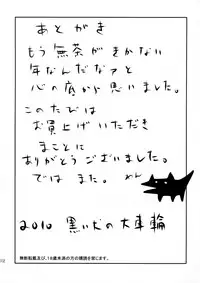 あとがき
もう無茶がきかない
年なんだなァと
心の底から思いました。
このたびは
お買上げいただき
まことに
ありがとうございました。
ではまた。わん
2010 黒い犬の大車輪
無断転載及び、18歳未満の方の購読を禁じます。